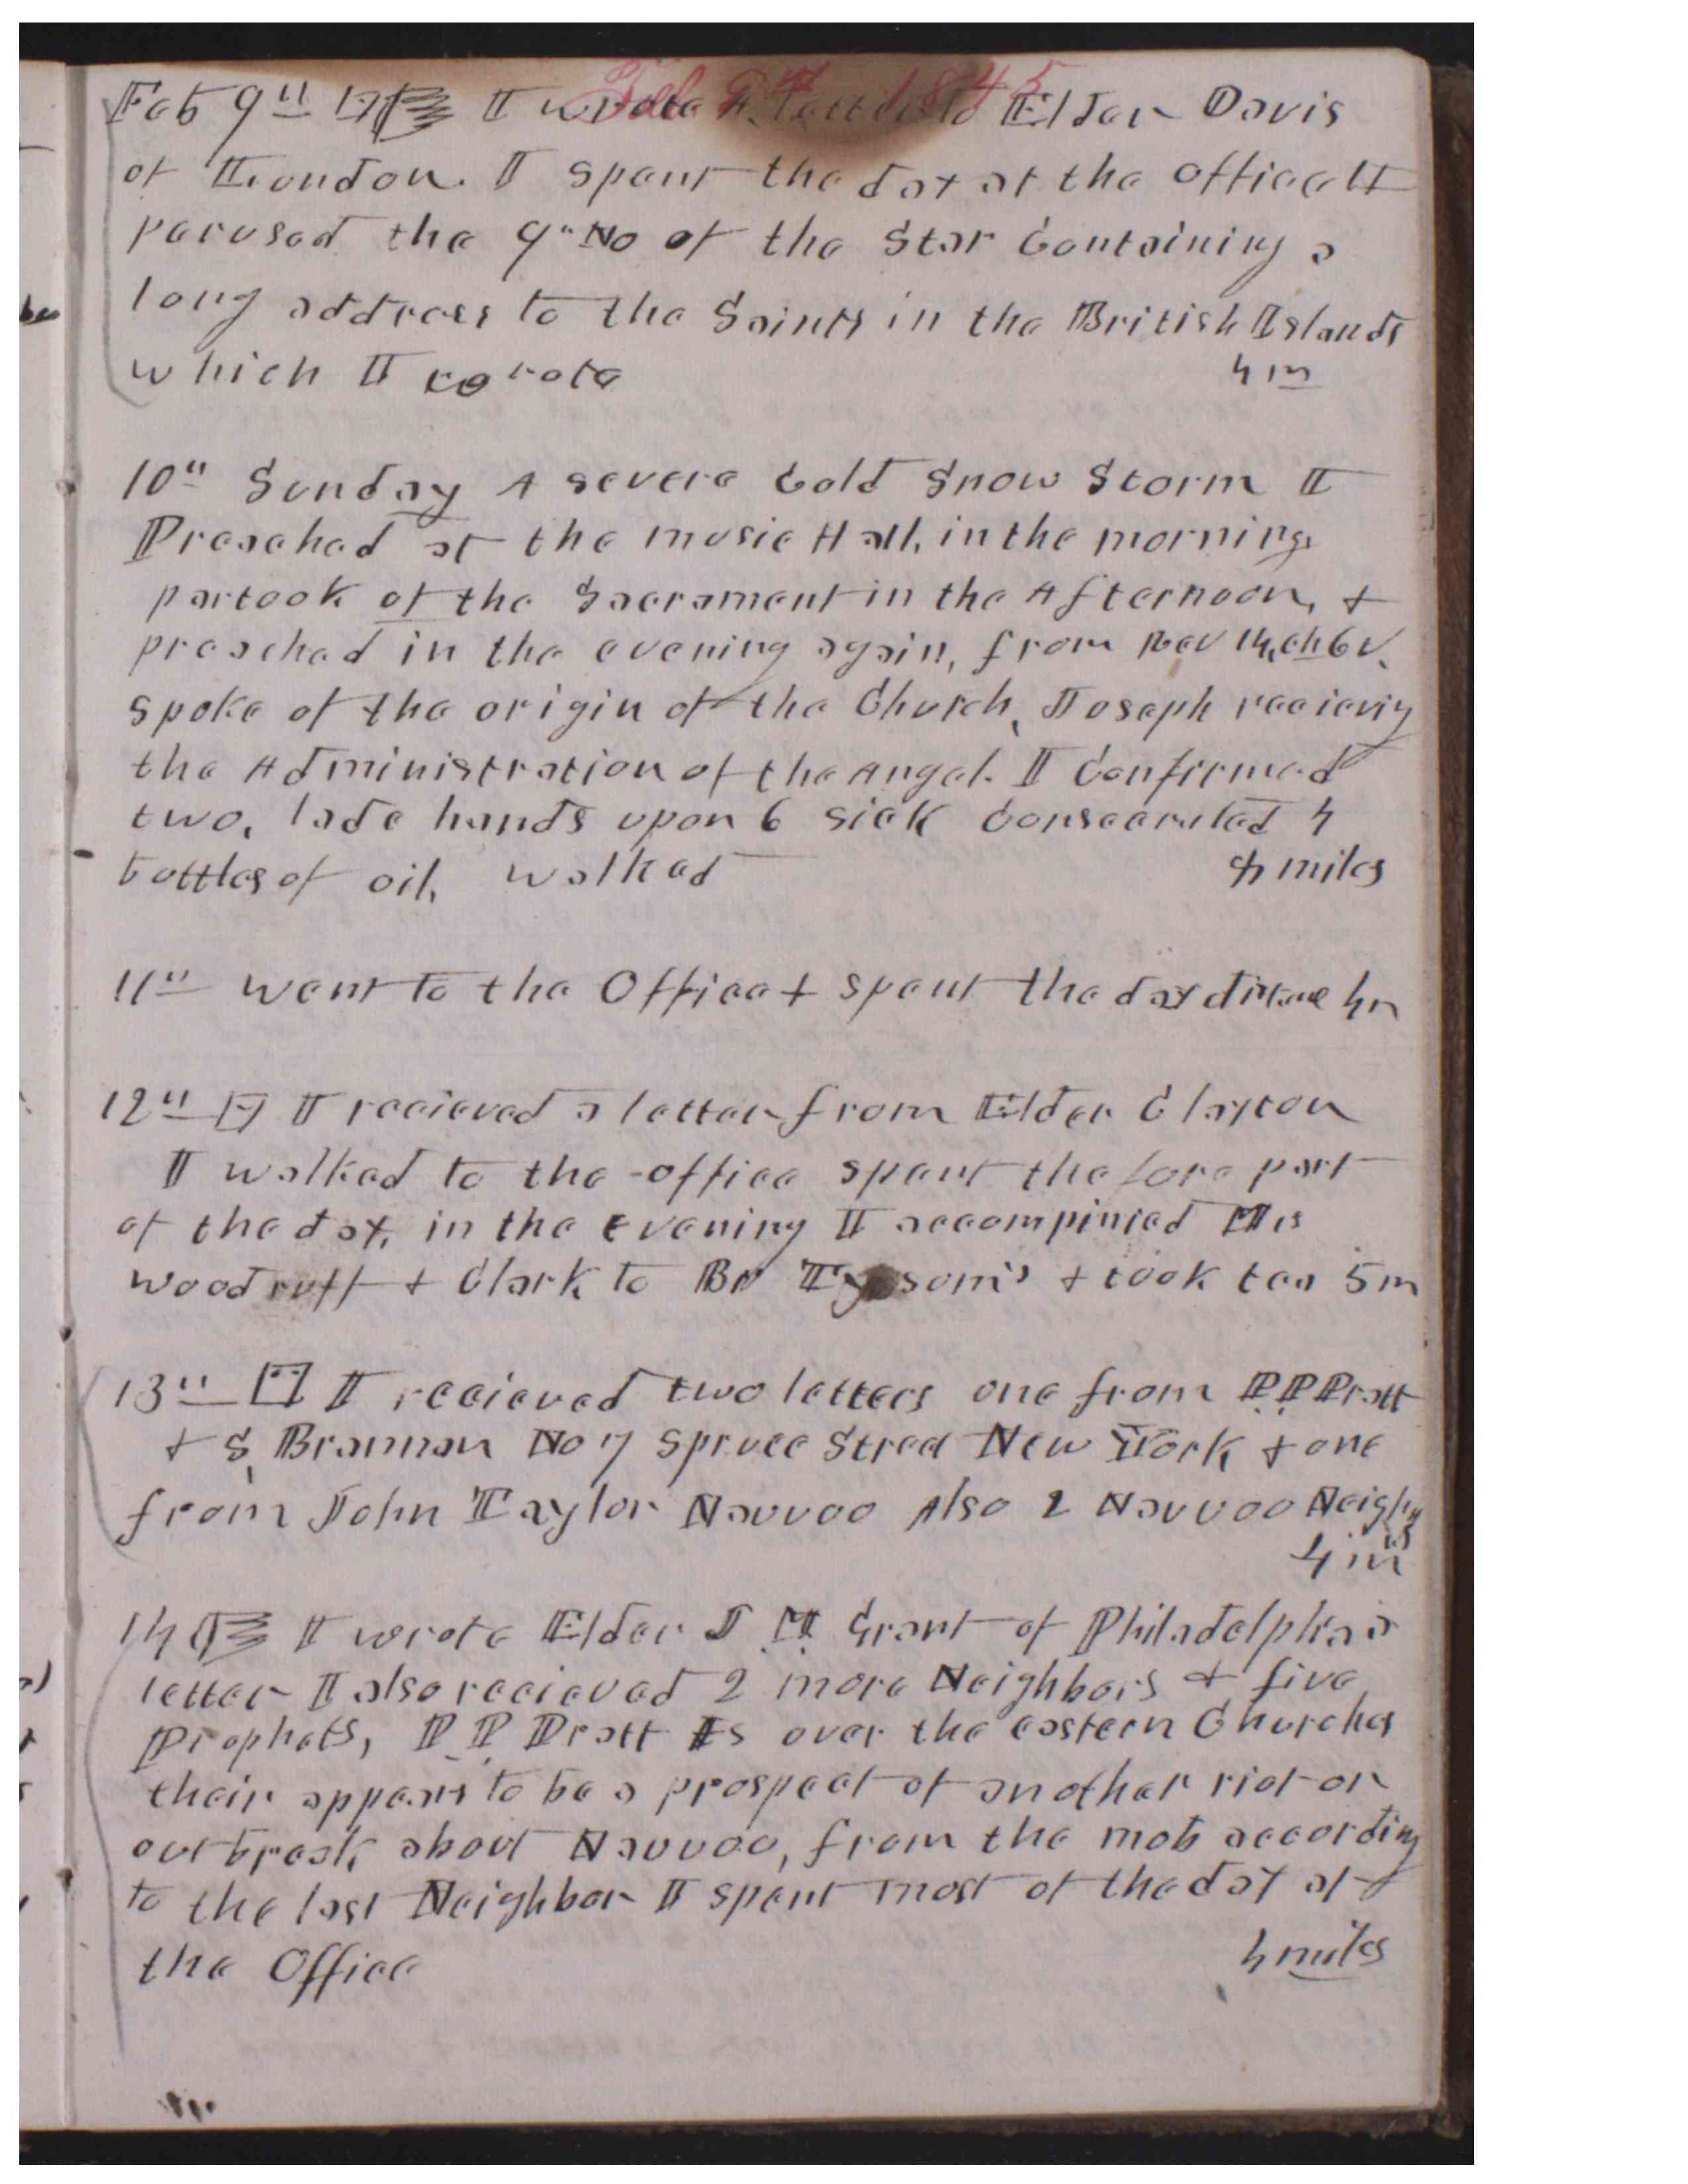 Feb 9th 1845
Feb 9th I wrote A letter to Elder Davis
of London. I spent the day at the office I
perused the 9th No of the Star Containing a
long address to the Saints in the British Islands
which I wrote 4 m
10th Sunday A severe Cold Snow Storm I
Preached at the music Hall, in the morning
partook of the Sacrament in the Afternoon, &
preached in the evening again, from Rev 14, ch 6 v.
spoke of the origin of the Church, Joseph recievig
the Administration of the Angel. I Confirmed
two, lade hands upon 6 sick Consecrated 4
bottles of oil, walked 4 miles
11th went to the Office & spent the day distance 4 m
12th I recieved a letter from Elder Clayton
I walked to the office spent the fore part
of the day, in the Evening I accompinied Mrs
Woodruff & Clark to Br Tysom's & took tea 5 m
13th I recieved two letters one from P. P. Pratt
& S, Brannan No 7 Spruce Street New York & one
from John Taylor Nauvoo Also 2 Nauvoo Neighbors
4 m
14 I wrote Elder J M Grant of Philadelphia a
letter I also recieved 2 more Neighbors & five
Prophets, P. P. Pratt Is over the eastern Churches
their appears to be a prospect of another riot or
outbreak about Nauvoo, from the mob according
to the last Neighbor I spent most of the day at
the Office 4 miles